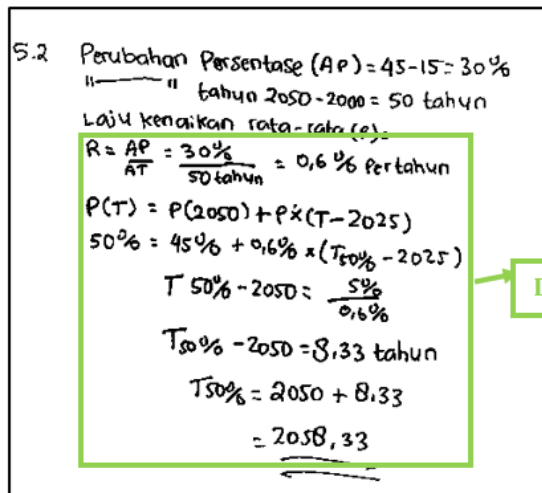 5.2 Perubahan Persentase (AP) = 45-15 = 30%
"——" tahun 2050-2000 = 50 tahun
Laju kenaikan rata-rata (R):
R = AP/AT = 30%/50 tahun = 0,6% Pertahun
P(T) = P(2050) + P × (T-2025)
50% = 45% + 0,6% × (T50% - 2025)
T 50% - 2050 = 5%/0,6%
T50% - 2050 = 8,33 tahun
T50% = 2050 + 8,33
= 2058,33